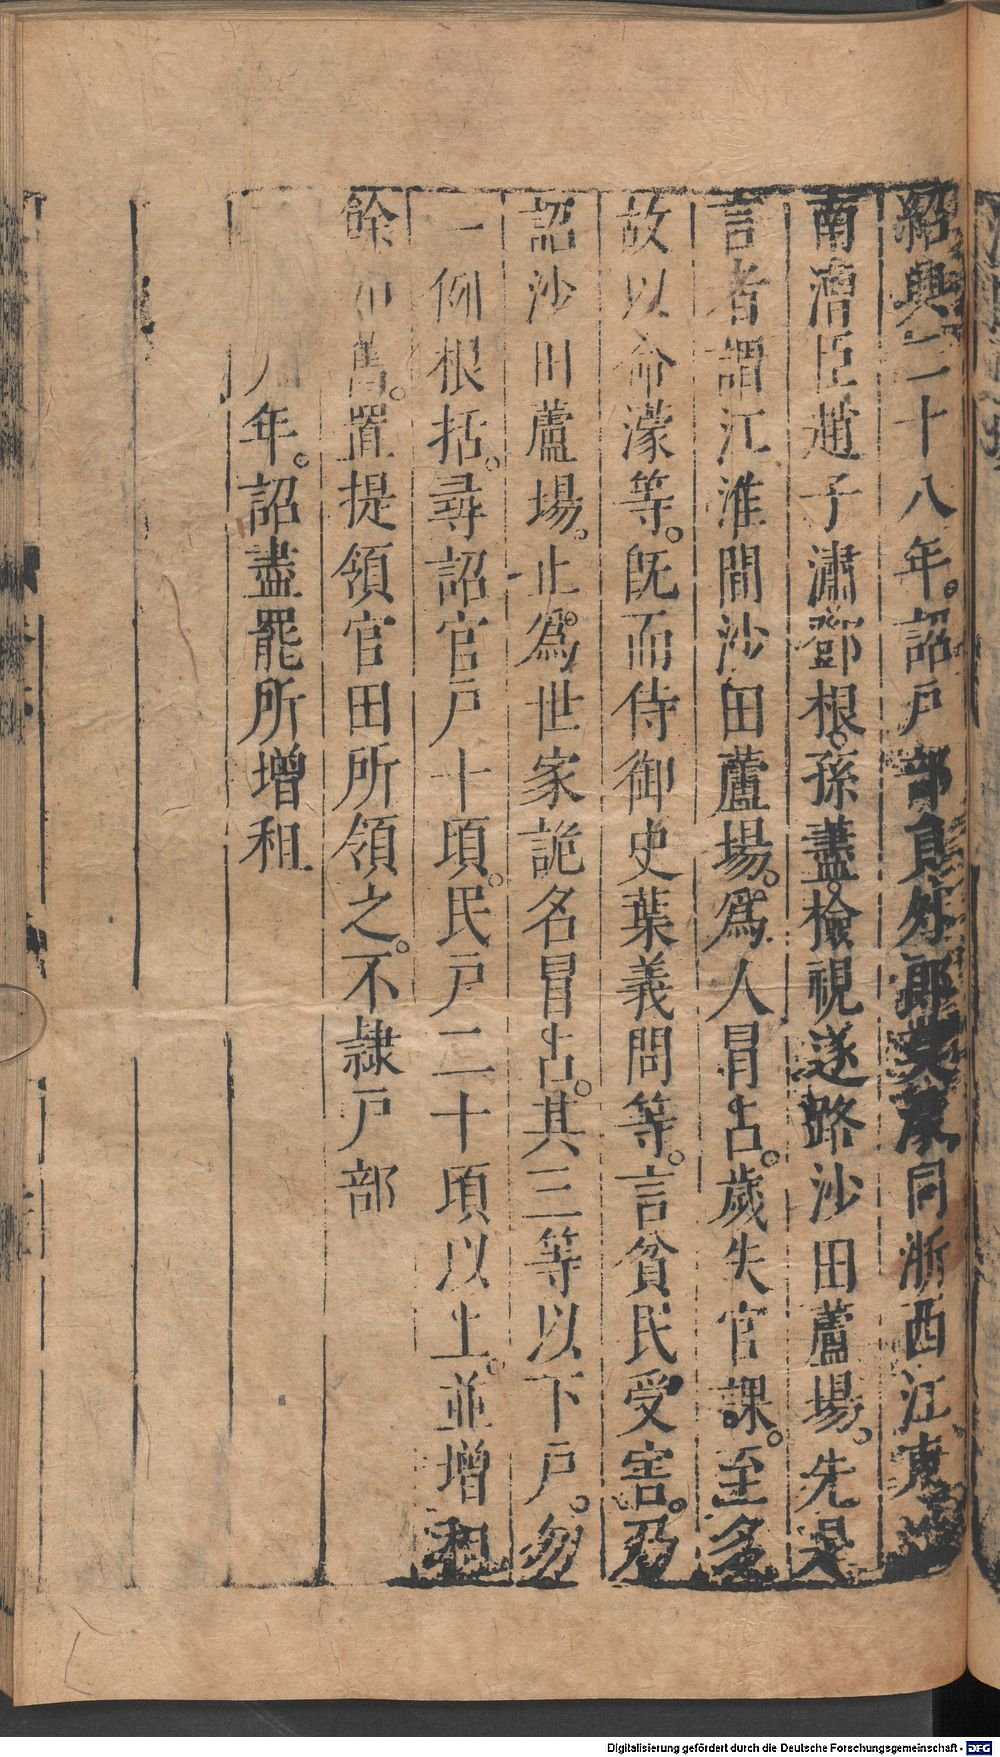 紹興二十八年。詔戶部員外郎莫濛同浙西江東淮
南漕臣趙子潚鄧根。孫藎。檢視逐路沙田蘆場。先是
言者謂江淮間沙田蘆場。爲人冒占。歲失官課。至多
故以命濛等。旣而侍御史葉義問等。言貧民受害。乃
詔沙田蘆場。止。爲世家詭名冒占。其三等以下戶。勿
一例根括。尋詔官戶十頃。民戶二十頃以上。並增租
餘如舊。置提領官田所領之。不隷戶部
年。詔盡罷所增租
Digitalisierung gefördert durch die Deutsche Forschungsgemeinschaft - DFG